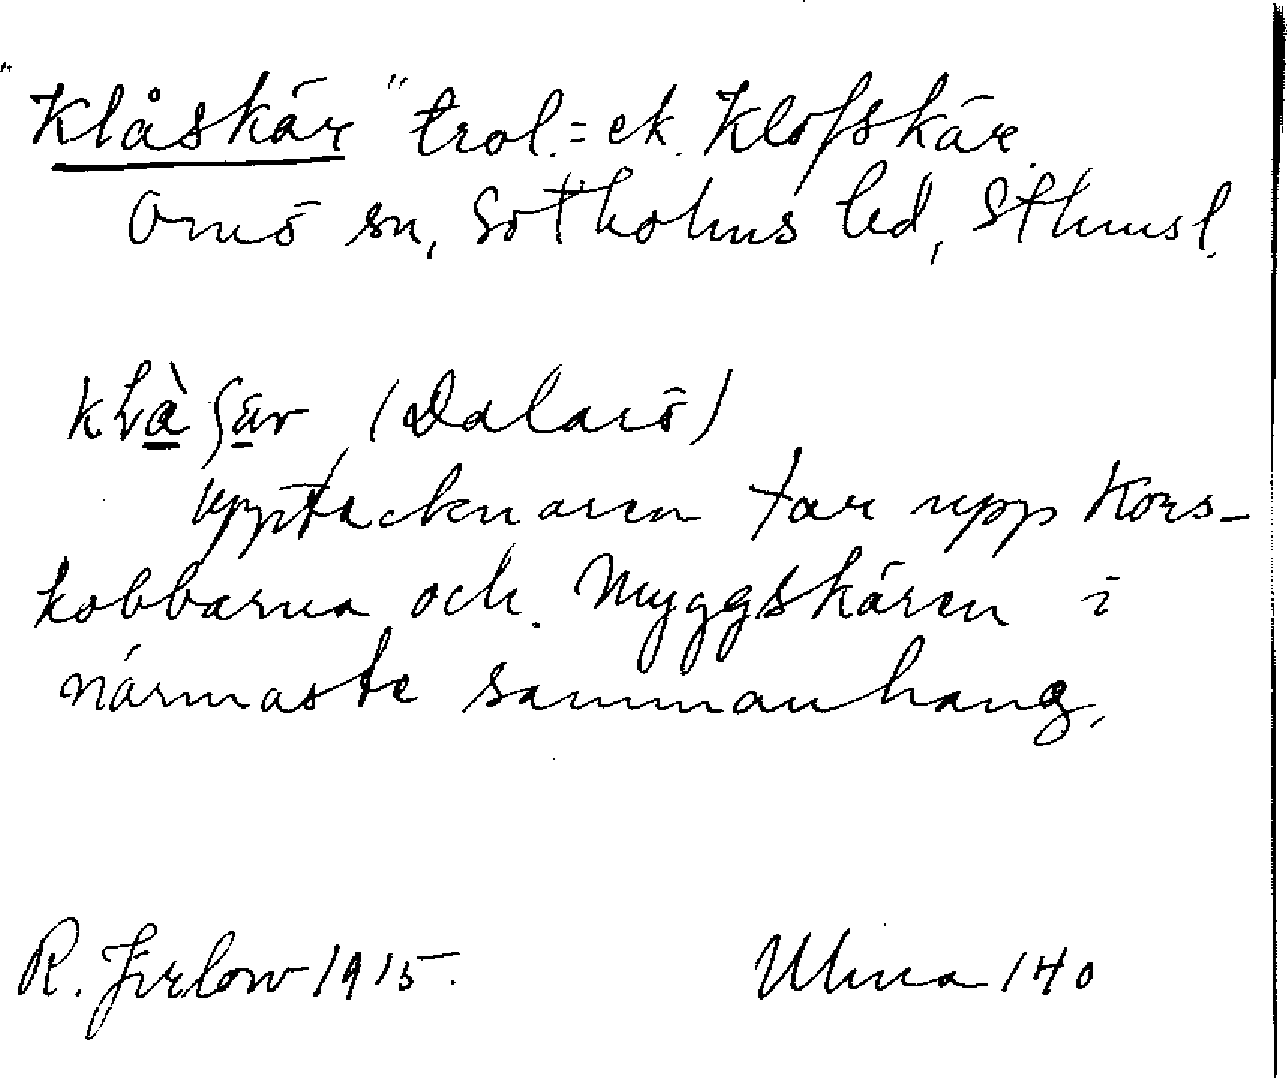 "Klåskär" trol. = ek. Klofskär.
Ornö sn, Sotholms hd, Sthmsl.
(Dalarö)
upptecknaren tar upp Kors-
kobbarna och Myggskären i
närmaste sammanhang.
R. Jirlow 1915. Ulma 140